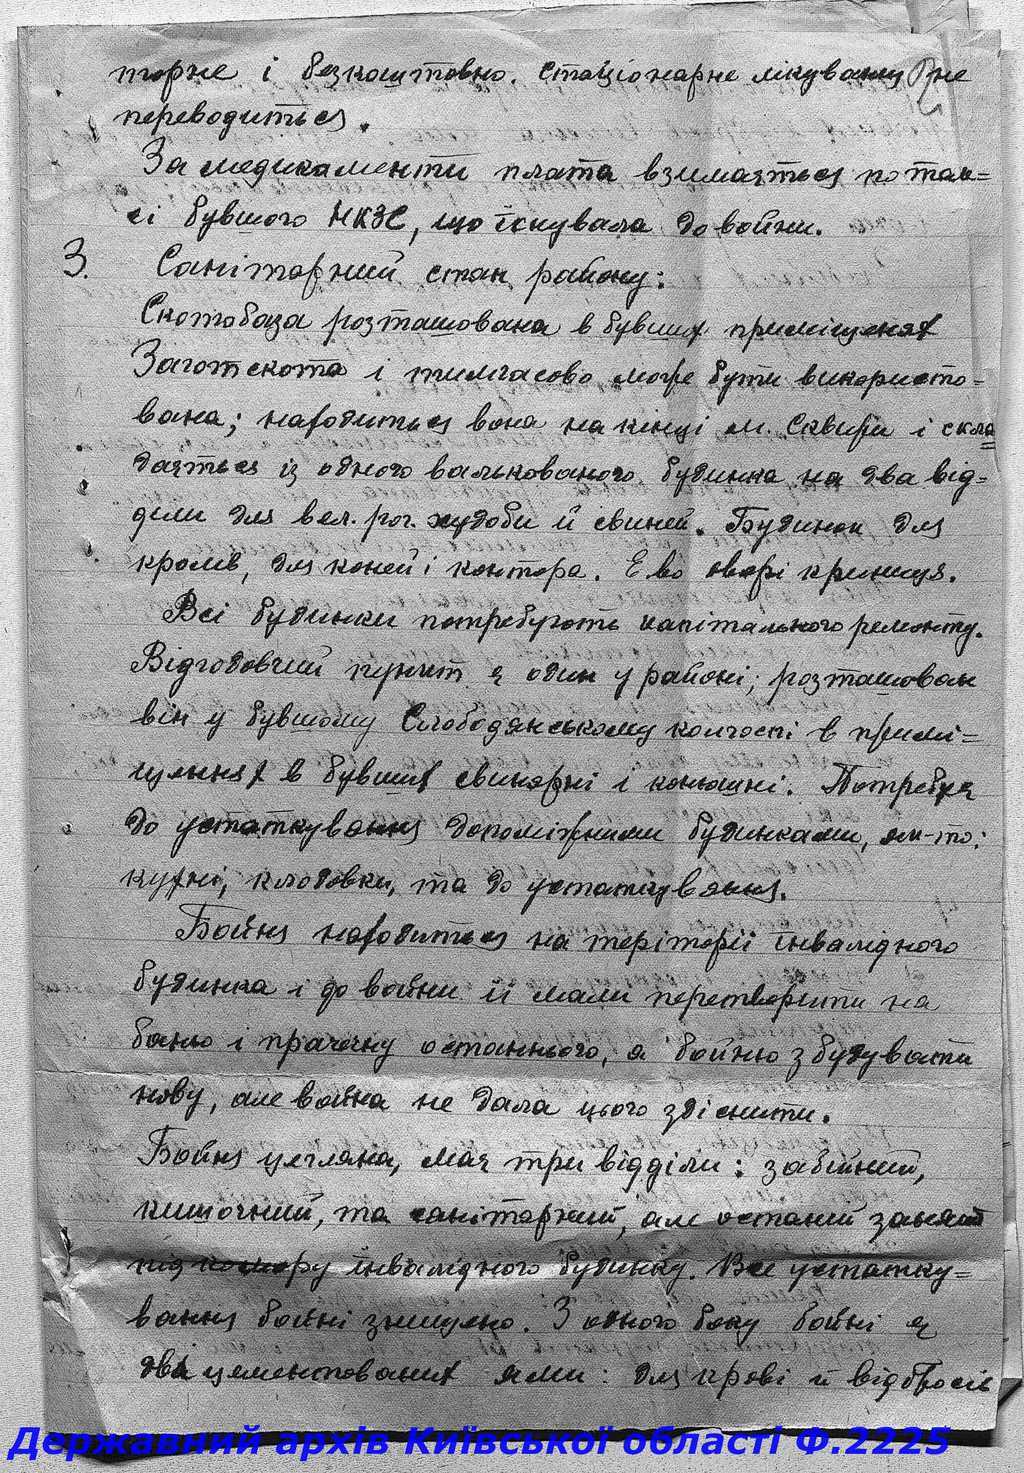 торне і безкоштовно. Стаціонарне лікування не
переводиться.
За медикаменти плата взимається по так=
сі бувшого НКЗС, що існувала до войни.
3. Санітарний стан району:
Скотобаза розташована в бувших приміщенях
Заготскота і тимчасово може бути використо=
вана; находиться вона на кінці м. Сквири і скла
дається із одного валькованого будинка на два від=
діли для вел. рог. худоби й свиней. Будинок для
кролів, для коней і контора. Е во дворі криниця.
Всі будинки потребують капітального ремонту.
Відгодовчий пункт є один у районі; розташован
він у бувшому Слободянському колгоспі в примі=
щулнях в бувших свинярні і конюшні. Потребує
до устаткування допоміжними будинками, як-то:
кухні, кладовки, та до устаткування.
Бойня находиться на теріторії інвалідного
будинка і до войни її мали перетворити на
баню і прачечну останнього, а бойню збудувати
нову, але война не дала цього здіснити.
Бойня цегляна, має три відділи: забійний,
кишочний, та санітарний, але останій занятий
під комору інвалідного будинку. Все устатку=
вання бойні знищено. З одного боку бойні є
дві цементованих ями: для крові й відбросів
Державний архів Київської області Ф.2225